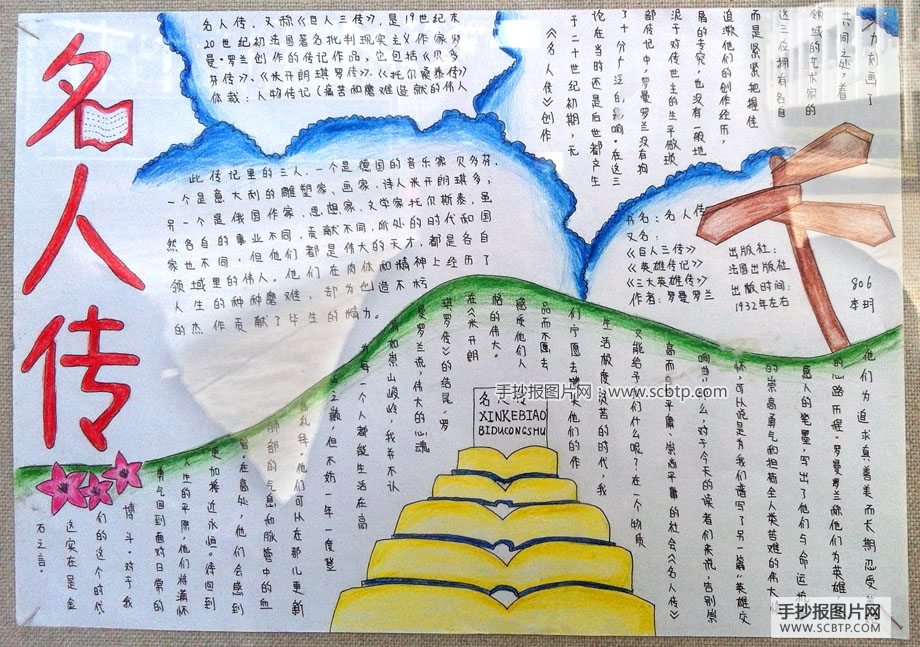 名人传
名人传，又称《巨人三传》，是19世纪末
20世纪初法国著名批判现实主义作家罗
曼·罗兰创作的传记作品，它包括《贝多
芬传》、《米开朗琪罗传》、《托尔斯泰传》
体裁：人物传记（痛苦和磨难造就的伟人
力刻画了
共同之处，着
领域的艺术家的
这三位拥有各自
而是紧紧把握住
追溯他们的创作经历，
屑的考究，也没有一般地
泥于对传世主的生平做琐
部传记中，罗曼罗兰没有拘
了十分广泛的影响。在这三
论在当时还是后世都产生
于二十世纪初期，无
《名人传》创作
此传记里的三人，一个是德国的音乐家贝多芬，
一个是意大利的雕塑家、画家、诗人米开朗琪罗，
另一个是俄国作家、思想家、文学家托尔斯泰，虽
然各自的事业不同，贡献不同，所处的时代和国
家也不同，但他们都是伟大的天才，都是各自
领域里的伟人。他们在肉体和精神上经历了
人生的种种磨难，却为创造不朽
的杰作贡献了毕生的精力。
书名：名人传
又名：
《巨人三传》
《英雄传记》
《三大英雄传》
作者：罗曼罗兰
出版社：
法国出版社
出版时间：
1932年左右
806
李玥
他们为追求真善美而长期忍受
的心路历程。罗曼罗兰称他们为英雄，
感人的笔墨，写出了他们与命运抗
的崇高勇气和担荷全人类苦难的伟大情
怀，可以说是为我们谱写了另一篇"英雄交
响曲"。那么，对于今天的读者们来说，告别崇
高而自甘平庸 崇尚平庸的社会《名人传》
又能给予我们什么呢？在一个物质
生活极度贫苦的时代，我
们宁愿去赞美他们的作
品而不愿去
感受他们人
格的伟大。
在《米开朗
琪罗传》的结尾，罗
曼罗兰说，伟大的心魂
有如崇山峻岭，我并不认
为每一个人都能生活在高
山之巅，但不妨一年一度登
高礼拜。他们可以在那儿更新
肺部的气息和脉管中的血
液，在高处，他们会感到
更加接近永恒。待回到
人生的平原，他们将满怀
勇气回到面对日常的
搏斗。对于我
们的这个时代
这实在是金
石之言。
名人传
XINKEBIAO
BIDUCONGSHU
手抄报图片网 www.scbtp.com
手抄报图片网
WWW.SCBTP.COM